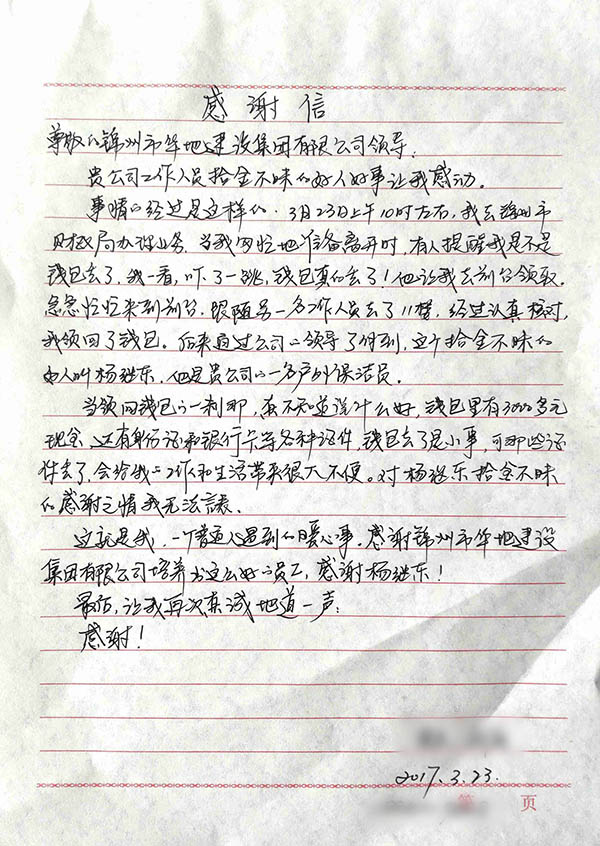 感谢信
尊敬的锦州市华地建设集团有限公司领导：
贵公司工作人员拾金不昧的好人好事让我感动。
事情的经过是这样的，3月23日上午10时左右，我去锦州市
财政局办理业务，当我匆忙地准备离开时，有人提醒我是不是
钱包丢了，我一看，吓了一跳，钱包真的丢了！他让我去前台领取。
急急忙忙来到前台，跟随另一名工作人员去了11楼，经过认真核对，
我领回了钱包。后来通过公司的领导了解到，这个拾金不昧的
好人叫杨继东，他是贵公司的一名户外保洁员。
当领回钱包的一刹那，真不知道说什么好，钱包里有3000多元
现金，还有身份证和银行卡等各种证件，钱包丢了是小事，可那些证
件丢了，会给我的工作和生活带来很大不便。对杨继东拾金不昧
的感谢之情我无法言表。
这就是我，一个普通人遇到的暖心事。感谢锦州市华地建设
集团有限公司培养出这么好的员工，感谢杨继东！
最后，让我再次真诚地道一声：
感谢！
2017.3.23.
第 页